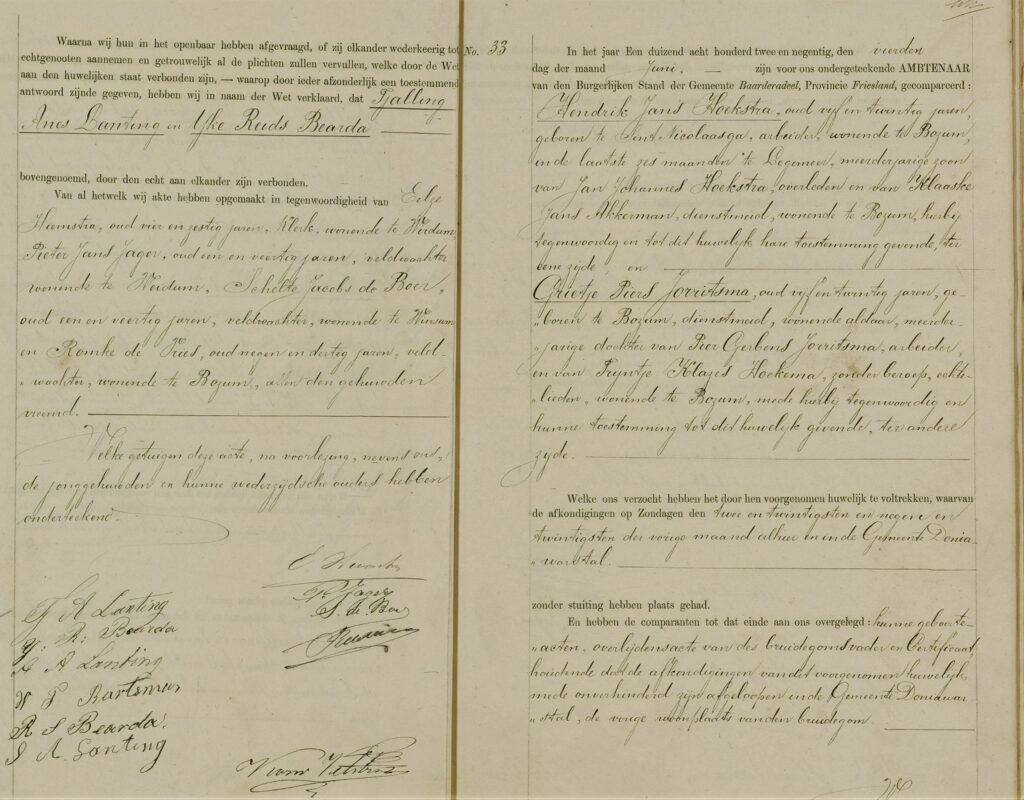 Waarna wij hun in het openbaar hebben afgevraagd, of zij elkander wederkeerig tot
echtgenooten aannemen en getrouwelijk al de plichten zullen vervullen, welke door de Wet
aan den huwelijken staat verbonden zijn, — waarop door ieder afzonderlijk een toestemmend
antwoord zijnde gegeven, hebben wij in naam der Wet verklaard, dat Tjalling
Anes Lanting en Ytje Reids Bearda
bovengenoemd, door den echt aan elkander zijn verbonden.
Van al hetwelk wij akte hebben opgemaakt in tegenwoordigheid van Eelze
Hiemstra, oud vier en zestig jaren, Klerk, wonende te Weidum,
Pieter Jans Jager, oud een en veertig jaren, veldwachter
wonende te Weidum, Schelte Jacobs de Boer,
oud een en veertig jaren, veldwachter, wonende te Winsum
en Romke de Vries, oud negen en dertig jaren, veld-
„ wachter, wonende te Bozum, allen den gehuwden
vreemd.
Welke getuigen deze acte, na voorlezing, nevens ons,
de jonggehuwden en hunne wederzijdsche ouders hebben
onderteekend.
P. Jager
S. de Boer
T A Lanting
Y. R. Bearda
A A Lanting
R S Bearda.
S A Lanting
No. 33
In het jaar Een duizend acht honderd twee en negentig, den vierden
dag der maand Juni, — zijn voor ons ondergeteekende AMBTENAAR
van den Burgerlijken Stand der Gemeente Baarderadeel, Provincie Friesland, gecompareerd:
Hendrik Jans Hoekstra, oud vijf en twintig jaren,
geboren te Sint Nicolaasga, arbeider, wonende te Bozum,
in de laatste zes maanden te Legemeer, meerderjarige zoon
van Jan Johannes Hoekstra, overleden en van Klaaske
Jans Akkerman, dienstmeid, wonende te Bozum, hierbij
tegenwoordig en tot dit huwelijk hare toestemming gevende, ter
eene zijde, en
Grietje Piers Jorritsma, oud vijf en twintig jaren, ge-
„boren te Bozum, dienstmeid, wonende aldaar, meerder-
„jarige dochter van Pier Gerbens Jorritsma, arbeider,
en van Trijntje Klazes Hoekema, zonder beroep, echte-
„lieden, wonende te Bozum, mede hierbij tegenwoordig en
hunne toestemming tot dit huwelijk gevende, ter andere
zijde.
Welke ons verzocht hebben het door hen voorgenomen huwelijk te voltrekken, waarvan
de afkondigingen op Zondagen den twee en twintigsten en negen en
twintigsten der vorige maand alhier en in de Gemeente Donia-
„warstal.
zonder stuiting hebben plaats gehad.
En hebben de comparanten tot dat einde aan ons overgelegd: hunne geboorte-
„acten, overlijdensacte van des bruidegoms vader en Certificaat,
houdende dat de afkondigingen van dit voorgenomen huwelijk
mede onverhinderd zijn afgeloopen in de Gemeente Doniawar-
„stal, de vorige woonplaats van den bruidegom.